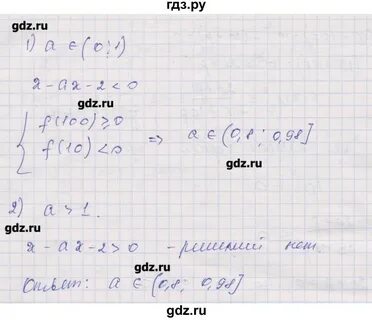 гдз.ру
gdz.ru
1) a ∈ (0; 1)
gdz.ru
x - ax - 2 < 0
gdz.ru
{ f(100) ⩾ 0
f(10) < 0 => a ∈ (0,8; 0,98]
gdz.ru
gdz.ru
2) a > 1.
gdz.ru
x - ax - 2 > 0 - решений нет.
gdz.ru
Ответ: a ∈ (0,8; 0,98]
gdz.ru
гдз.ру